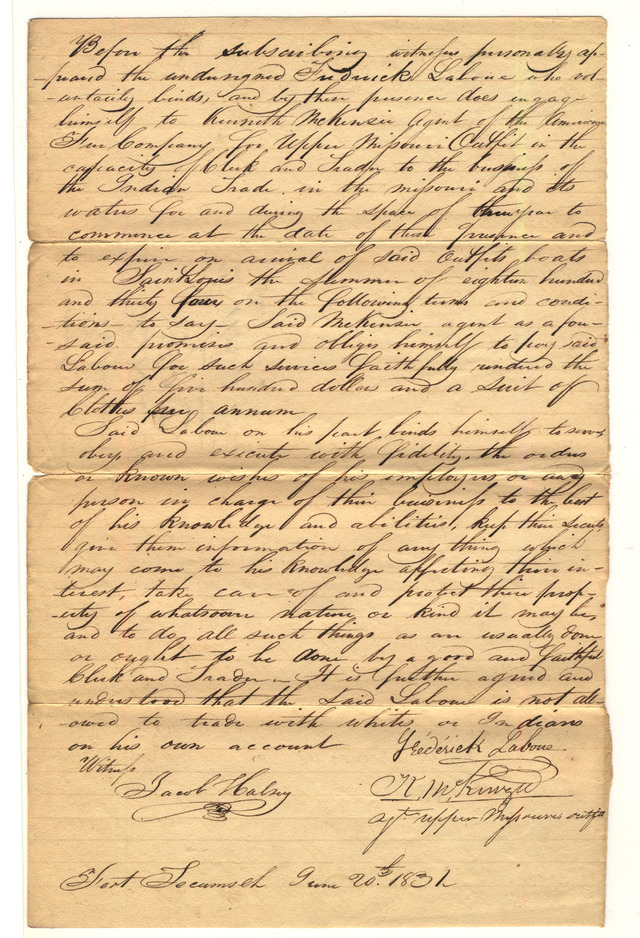 Before the subscribing witness personally ap-
-peared the undersigned Frederick Laboue who vol-
-untarily binds, and by these presence does engage
himself to Kenneth McKenzie agent of the American
Fur Company for Upper Missouri Outfit in the
capacity of Clerk and Trader to the business of
the Indian Trade in the missouri and its
waters for and during the space of three year to
commence at the date of these presence and
to expire on arrival of said outfits boats
in Saint Louis the summer of eighteen hundred
and thirty four on the following terms and condi-
-tions - to say - Said McKenzie agent as afore-
-said promises and obliges himself to pay said
Laboue for such services faithfully rendered the
sum of five hundred dollars and a suit of
Clothes per annum
Said Laboue on his part binds himself to serve
obey and execute with fidelity, the orders
or known wishes of his employers or any
person in charge of their buisiness to the best
of his knowledge and abilities, keep their secrets
give them information of any thing which
may come to his knowledge affecting their in-
-terest, take care of and protect their prop-
-erty of whatsoever nature or kind it may be,
and to do all such things as are usually done
or ought to be done by a good and faithful
Clerk and Trader - It is further agreed and
understood that the Said Laboue is not all-
-owed to trade with whites or Indians
on his own account
Frederick Laboue
Witness
Jacob Halsey
K McKenzie
agt upper Missouri outfit
Fort Tecumseh June 20th 1831